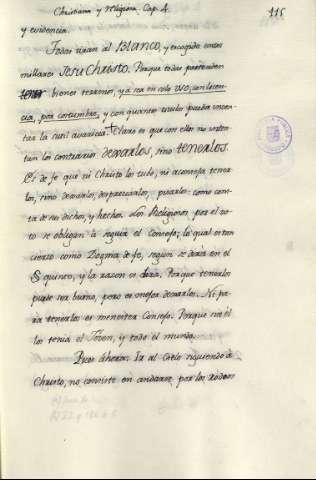 Christiana y Religiosa Cap. 4.
115
y evidencia.
Todos tiran al Blanco, y escogido entre
millares Jesu Christo. Porque todos pretenden
bienes terrenos, y á sea en solo uso, con licen-
cia, por costumbre, y con quantos titulos pueda inven-
tar la sutil avaricia. Claro es que con ellos no inten-
tan los contrarios dexarlos, sino tenerlos.
Es de fe que ni Christo los tubo, ni aconseja tener
los, sino dexarlos, despreciarlos, pisarlos: como cons-
ta de sus dichos, y hechos. Los Religiosos por el vo-
to se obligan á seguir el Consejo; lo qual es tan
cierto como Dogma de fe, segun se dirá en el
§ quinto, y la razon es obvia. Porque tenerlos
puede ser bueno, pero es mejor dexarlos. Ni pa-
ra tenerlos es menester Consejo. Porque asi
los tenia el Joven, y todo el mundo.
Pues ahora: Ir al Cielo siguiendo á
Christo, no consiste en andarse por los rodeos